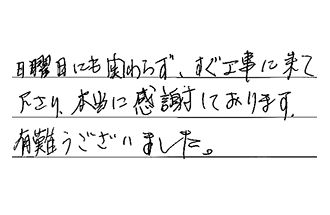 日曜日にも関わらず、すぐ工事に来て
下さり、本当に感謝しております。
有難うございました。